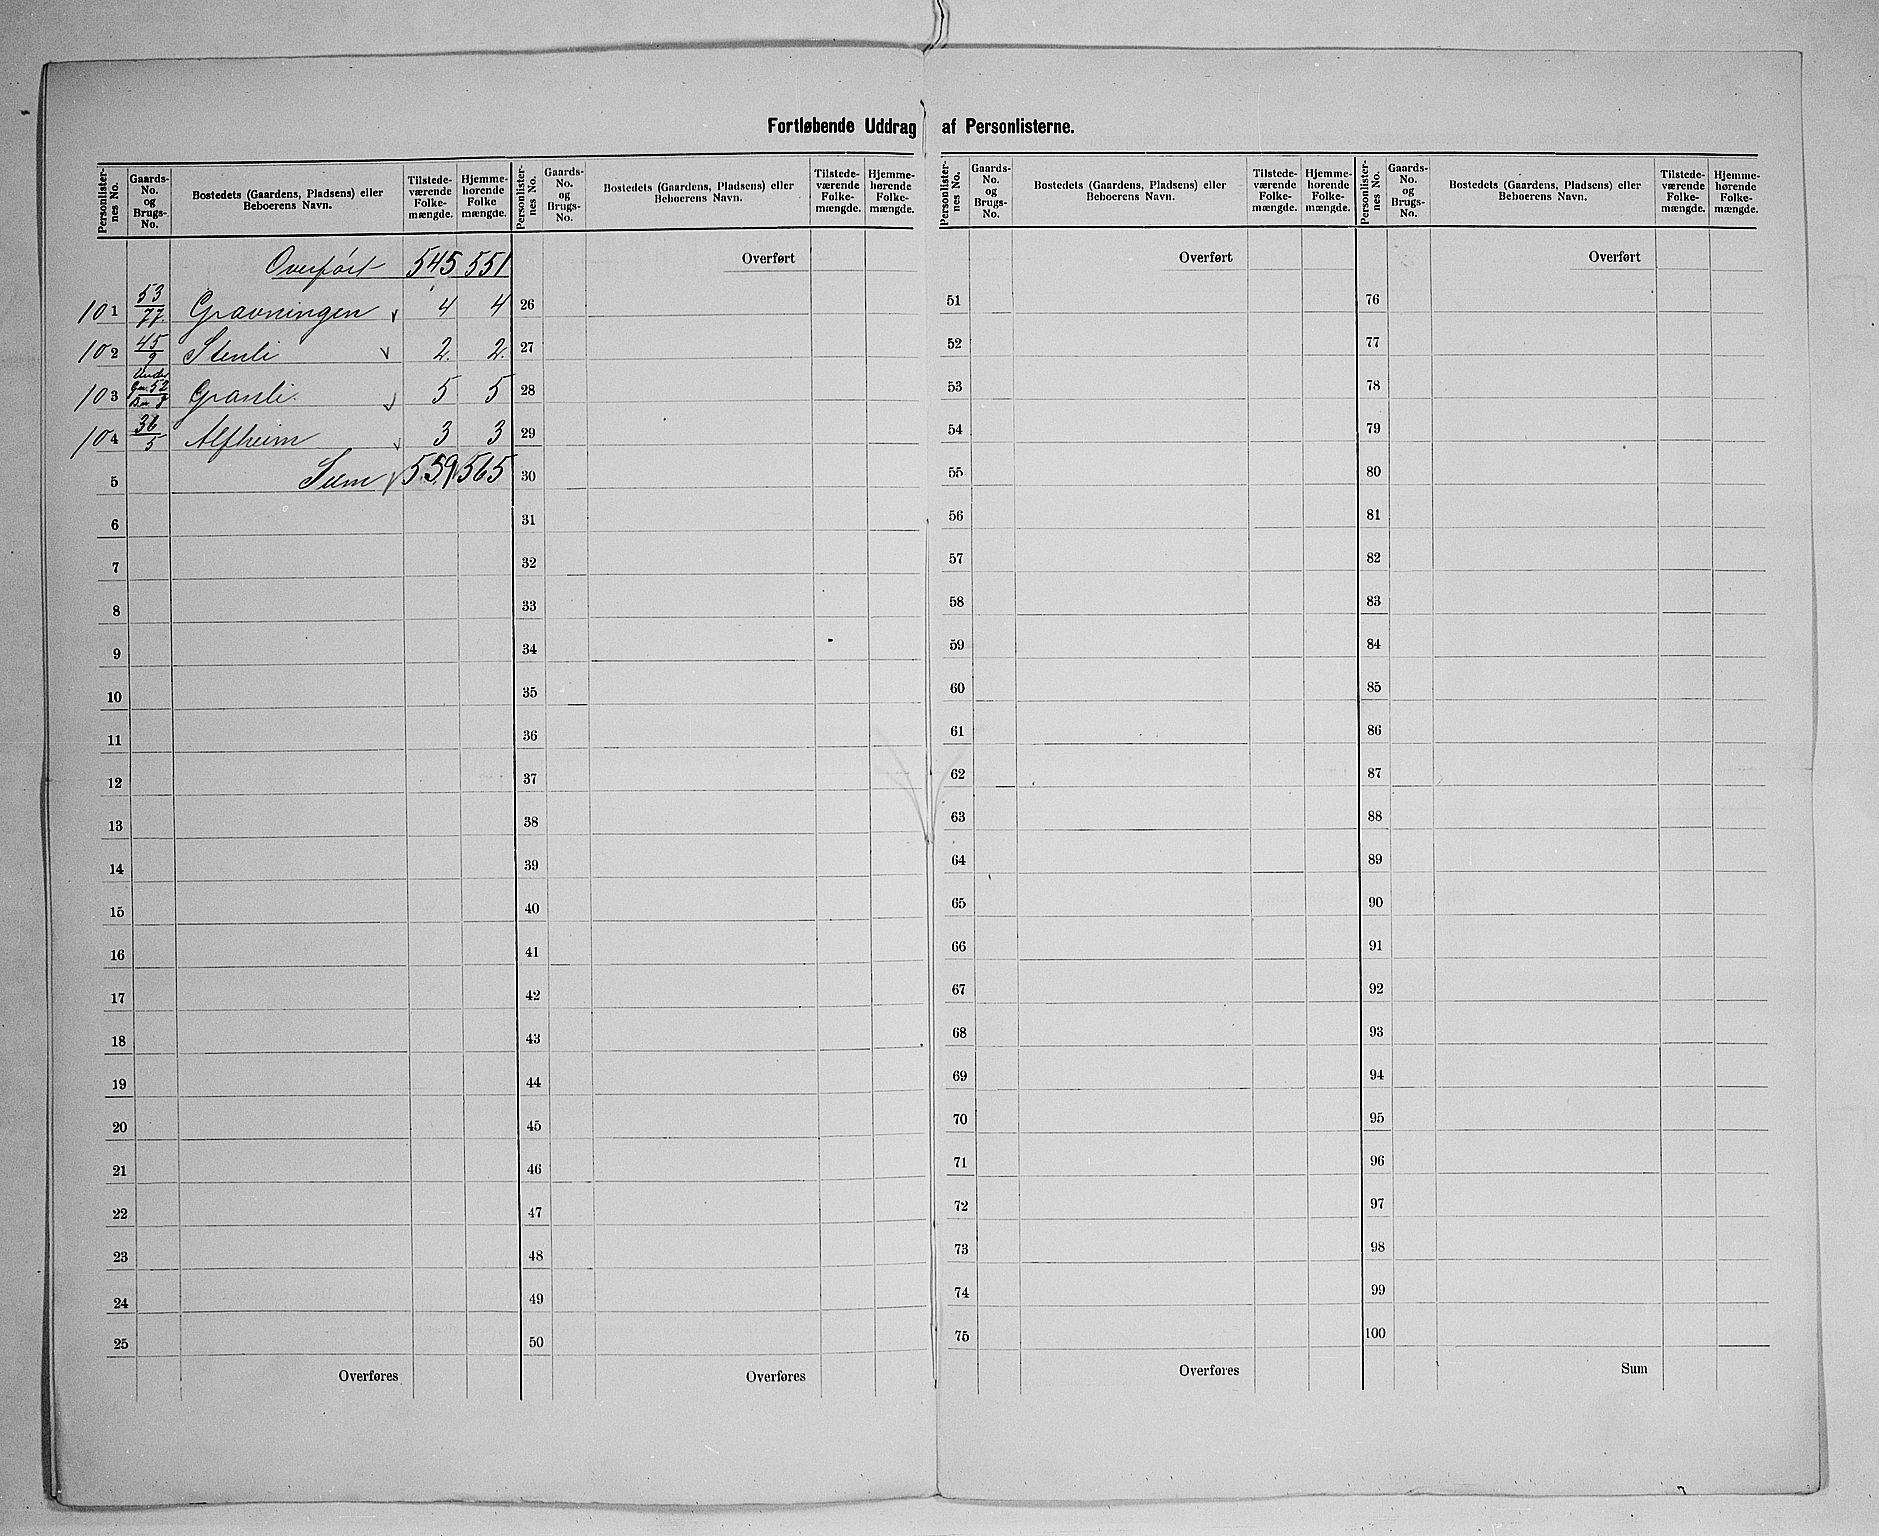 Fortløbende Uddrag af Personlisterne.
Personlister-nes No. | Gaards-No. og Brugs-No. | Bostedets (Gaardens, Pladsens) eller Beboerens Navn. | Tilstede-værende Folke-mængde. | Hjemme-hørende Folke mængde.
Overført 545 551
101 53/77 Gravningen 4 4
102 45/9 Stenli 2 2
103 Under Gn. 52 Bn 8 Granli 5 5
104 36/5 Alfheim 3 3
5 Sum 559 565
6
7
8
9
10
11
12
13
14
15
16
17
18
19
20
21
22
23
24
25
Overføres
Personlister-nes No. | Gaards-No. og Brugs-No. | Bostedets (Gaardens, Pladsens) eller Beboerens Navn. | Tilstede-værende Folke-mængde. | Hjemme-hørende Folke-mængde.
Overført
26
27
28
29
30
31
32
33
34
35
36
37
38
39
40
41
42
43
44
45
46
47
48
49
50
Overføres
Personlister-nes No. | Gaards-No. og Brugs-No. | Bostedets (Gaardens, Pladsens) eller Beboerens Navn. | Tilstede-værende Folke-mængde. | Hjemme-hørende Folke-mængde.
Overført
51
52
53
54
55
56
57
58
59
60
61
62
63
64
65
66
67
68
69
70
71
72
73
74
75
Overføres
Personlister-nes No. | Gaards-No. og Brugs-No. | Bostedets (Gaardens, Pladsens) eller Beboerens Navn. | Tilstede-værende Folke-mængde. | Hjemme-hørende Folke-mængde.
Overført
76
77
78
79
80
81
82
83
84
85
86
87
88
89
90
91
92
93
94
95
96
97
98
99
100
Sum